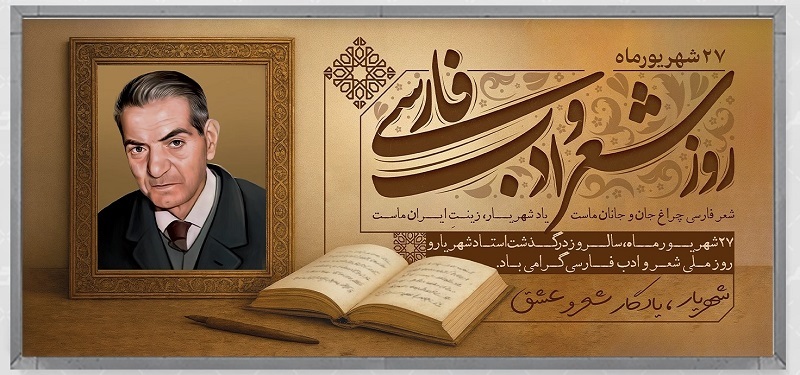 ۲۷ شهریورماه
روز شعر و ادب فارسی
شعر فارسی چراغ جان و جانان ماست یاد شهریـار، زینتِ ایـران ماست
۲۷ شهریـور مـاه، سالـروز درگـذشت استـاد شهریار و
روز مـلی شعـر و ادب فـارسی گـرامی بـاد.
شهریار، یادگار شعر و عشق